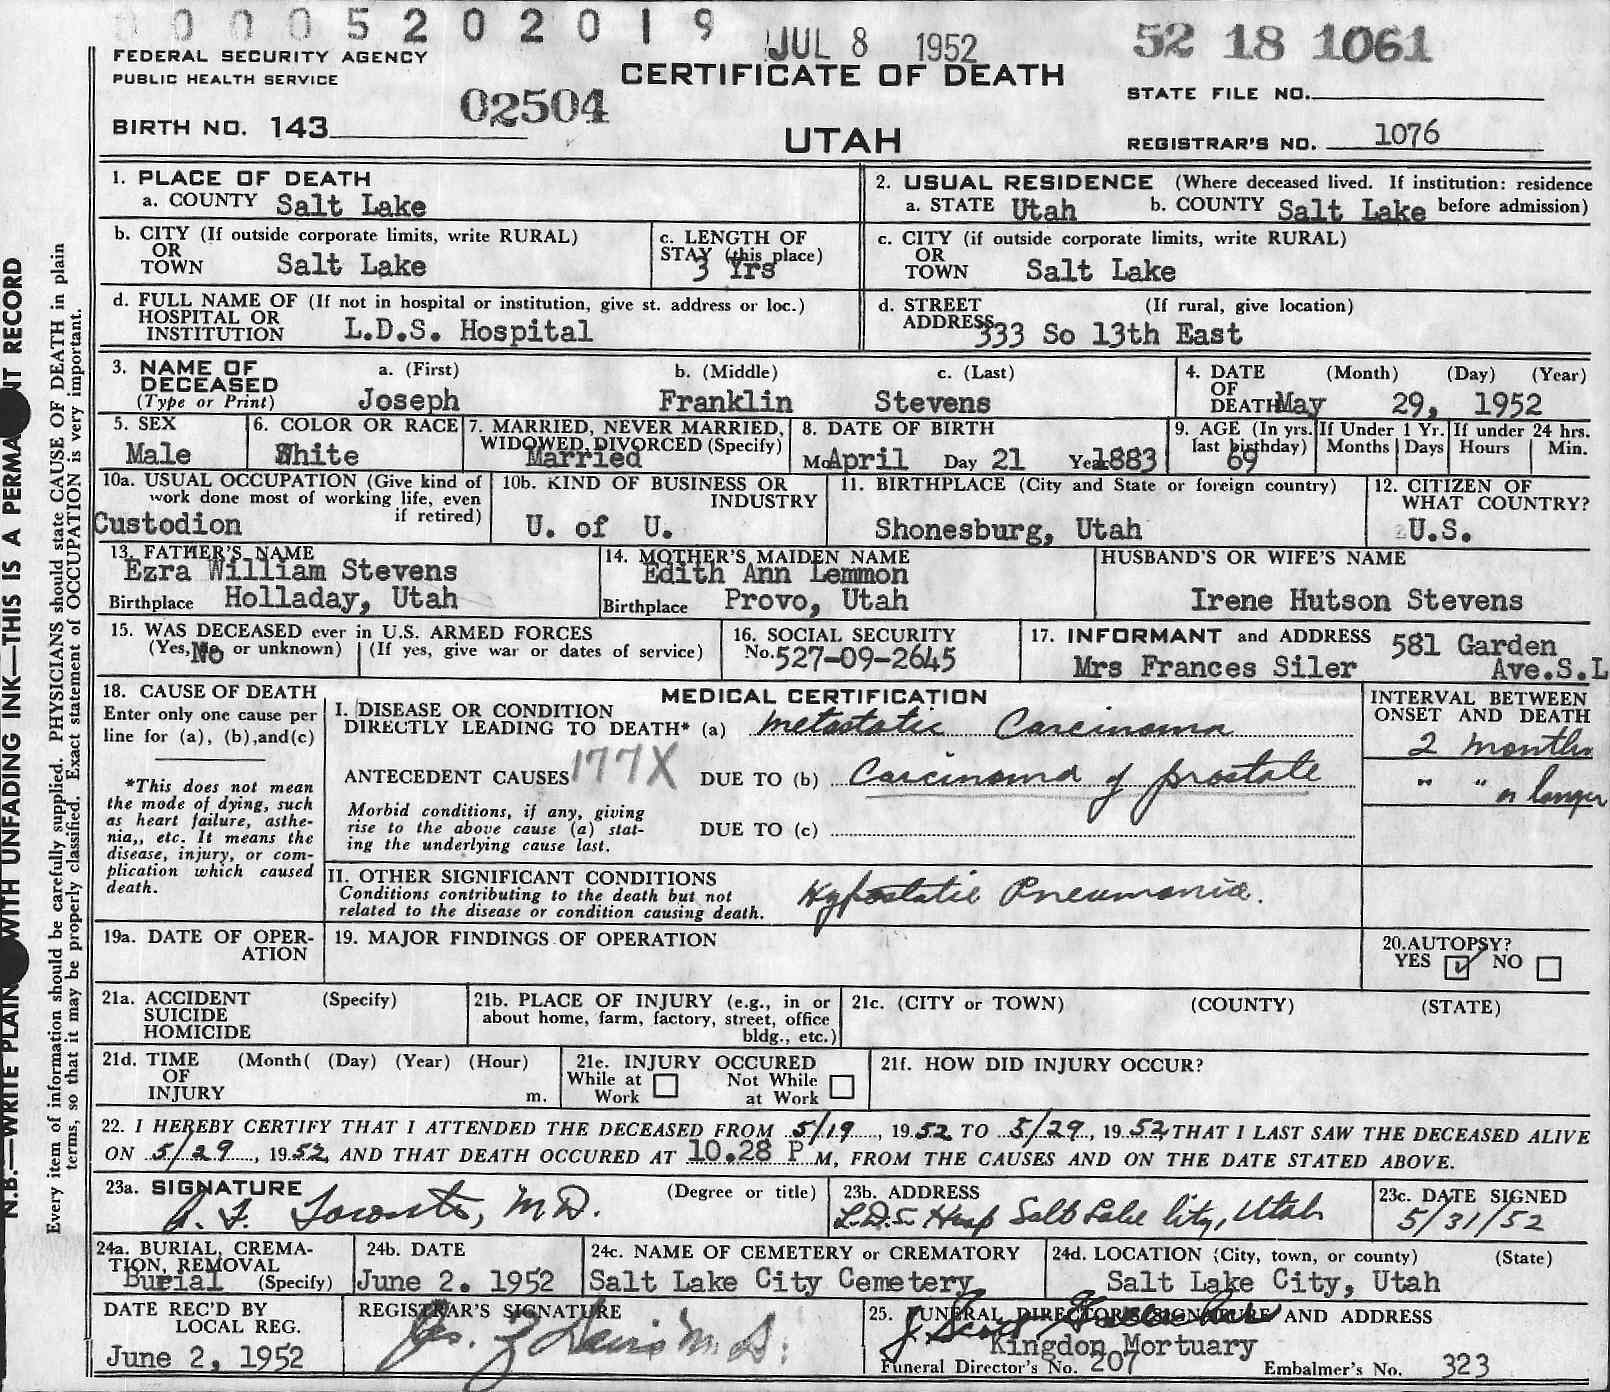 0 0 0 5 2 0 2 0 1 9
JUL 8 1952
52 18 1061
FEDERAL SECURITY AGENCY
PUBLIC HEALTH SERVICE
CERTIFICATE OF DEATH
STATE FILE NO.
02504
BIRTH NO. 143
UTAH
REGISTRAR'S NO. 1076
1. PLACE OF DEATH
a. COUNTY Salt Lake
2. USUAL RESIDENCE (Where deceased lived. If institution: residence
a. STATE Utah b. COUNTY Salt Lake before admission)
b. CITY (If outside corporate limits, write RURAL)
OR
TOWN Salt Lake
c. LENGTH OF
STAY (this place)
3 Yrs
c. CITY (if outside corporate limits, write RURAL)
OR
TOWN Salt Lake
d. FULL NAME OF (If not in hospital or institution, give st. address or loc.)
HOSPITAL OR
INSTITUTION L.D.S. Hospital
d. STREET (If rural, give location)
ADDRESS 333 So 13th East
3. NAME OF
DECEASED
(Type or Print)
a. (First) b. (Middle) c. (Last)
Joseph Franklin Stevens
4. DATE (Month) (Day) (Year)
OF
DEATH May 29, 1952
5. SEX
Male
6. COLOR OR RACE
White
7. MARRIED, NEVER MARRIED,
WIDOWED, DIVORCED (Specify)
Married
8. DATE OF BIRTH
Mo April Day 21 Year 1883
9. AGE (In yrs.
last birthday)
69
If Under 1 Yr.
Months Days
If under 24 hrs.
Hours Min.
10a. USUAL OCCUPATION (Give kind of
work done most of working life, even
if retired)
Custodion
10b. KIND OF BUSINESS OR
INDUSTRY
U. of U.
11. BIRTHPLACE (City and State or foreign country)
Shonesburg, Utah
12. CITIZEN OF
WHAT COUNTRY?
U.S.
13. FATHER'S NAME
Ezra William Stevens
Birthplace Holladay, Utah
14. MOTHER'S MAIDEN NAME
Edith Ann Lemmon
Birthplace Provo, Utah
HUSBAND'S OR WIFE'S NAME
Irene Hutson Stevens
15. WAS DECEASED ever in U.S. ARMED FORCES
(Yes, No or unknown) (If yes, give war or dates of service)
16. SOCIAL SECURITY
No. 527-09-2645
17. INFORMANT and ADDRESS 581 Garden
Mrs Frances Siler Ave.S.L
18. CAUSE OF DEATH
Enter only one cause per
line for (a), (b), and (c)
*This does not mean
the mode of dying, such
as heart failure, asthe-
nia,, etc. It means the
disease, injury, or com-
plication which caused
death.
MEDICAL CERTIFICATION
I. DISEASE OR CONDITION
DIRECTLY LEADING TO DEATH* (a) Metastatic Carcinoma
ANTECEDENT CAUSES 177X DUE TO (b) Carcinoma of prostate
Morbid conditions, if any, giving
rise to the above cause (a) stat-
ing the underlying cause last.
DUE TO (c)
INTERVAL BETWEEN
ONSET AND DEATH
2 months
" " or longer
II. OTHER SIGNIFICANT CONDITIONS
Conditions contributing to the death but not
related to the disease or condition causing death.
Hypostatic Pneumonia.
19a. DATE OF OPER-
ATION
19. MAJOR FINDINGS OF OPERATION
20. AUTOPSY?
YES ☑ NO ☐
21a. ACCIDENT (Specify)
SUICIDE
HOMICIDE
21b. PLACE OF INJURY (e.g., in or
about home, farm, factory, street, office
bldg., etc.)
21c. (CITY or TOWN) (COUNTY) (STATE)
21d. TIME (Month( (Day) (Year) (Hour)
OF
INJURY m.
21e. INJURY OCCURED
While at Work ☐ Not While at Work ☐
21f. HOW DID INJURY OCCUR?
22. I HEREBY CERTIFY THAT I ATTENDED THE DECEASED FROM 5/19, 1952 TO 5/29, 1952 THAT I LAST SAW THE DECEASED ALIVE
ON 5/29, 1952, AND THAT DEATH OCCURED AT 10.28 P M, FROM THE CAUSES AND ON THE DATE STATED ABOVE.
23a. SIGNATURE (Degree or title)
A. F. Toronto, M.D.
23b. ADDRESS
L.D.S. Hosp Salt Lake City, Utah
23c. DATE SIGNED
5/31/52
24a. BURIAL, CREMA-
TION, REMOVAL
Burial (Specify)
24b. DATE
June 2. 1952
24c. NAME OF CEMETERY or CREMATORY
Salt Lake City Cemetery
24d. LOCATION (City, town, or county) (State)
Salt Lake City, Utah
DATE REC'D BY
LOCAL REG.
June 2, 1952
REGISTRAR'S SIGNATURE
M.D.
25. FUNERAL DIRECTOR'S SIGNATURE AND ADDRESS
Kingdon Mortuary
Funeral Director's No. 207 Embalmer's No. 323
N.B.—WRITE PLAIN WITH UNFADING INK—THIS IS A PERMANENT RECORD
Every item of information should be carefully supplied. PHYSICIANS should state CAUSE OF DEATH in plain
terms, so that it may be properly classified. Exact statement of OCCUPATION is very important.